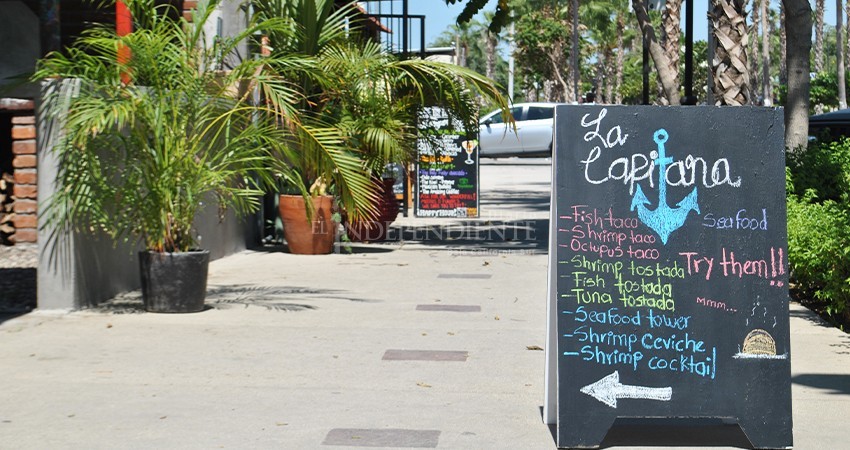 La
Capitana
Seafood
-Fish taco
-Shrimp taco
-Octupus taco
-Shrimp tostada
-Fish tostada
-Tuna tostada
Try them!!
mmm...
-Seafood tower
-Shrimp Ceviche
-Shrimp cocktail
EL INDEPENDIENTE